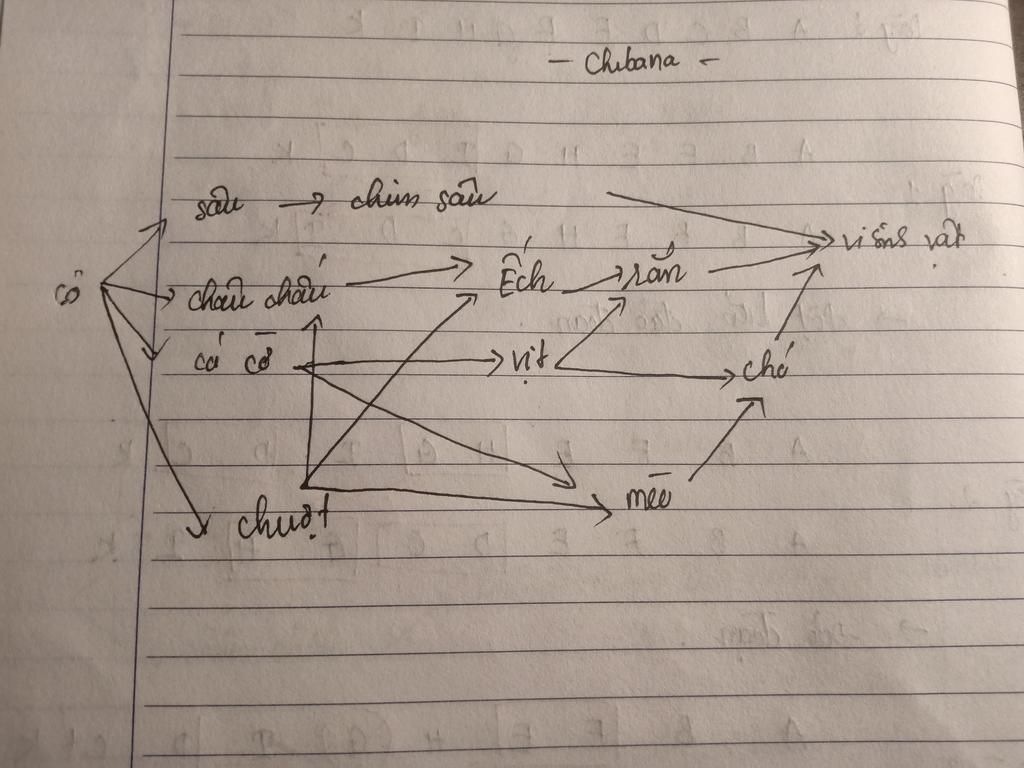 - Chibana -
sâu → chim sâu
vi sinh vật
cỏ
châu chấu
Ếch
rắn
cá cờ
vịt
chó
mèo
chuột